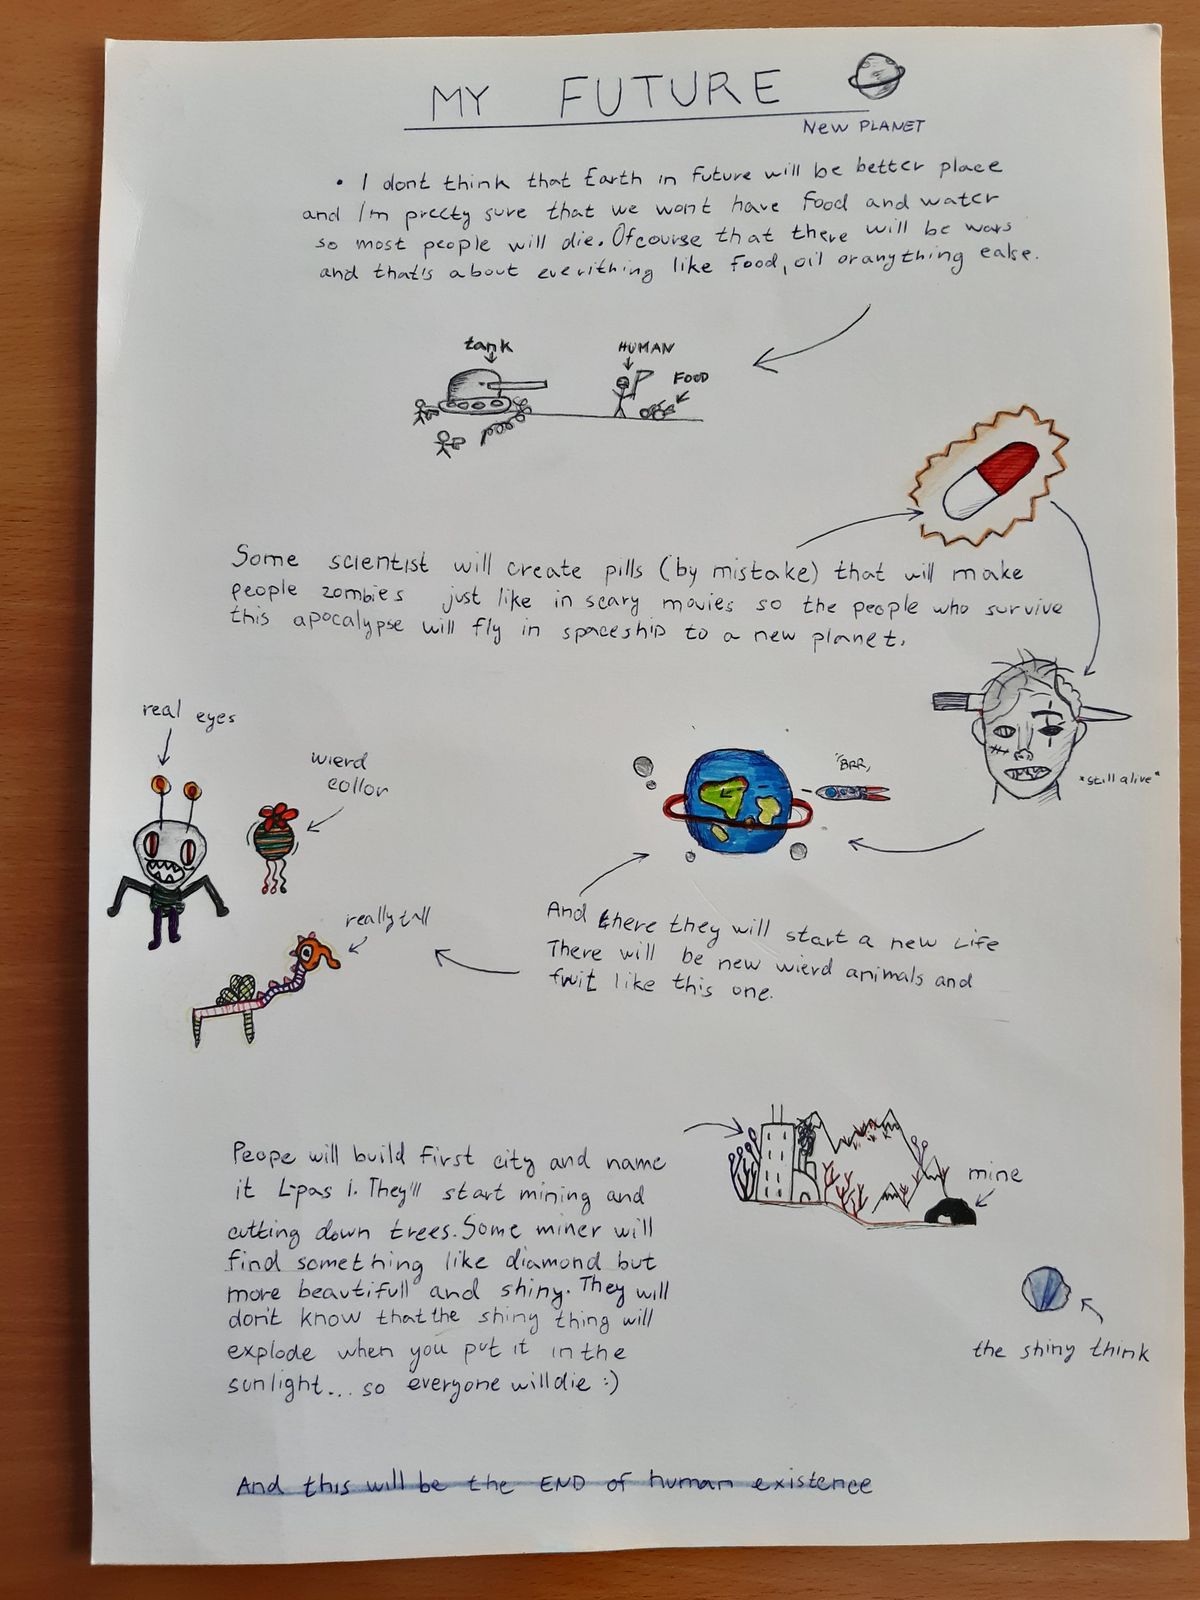 MY FUTURE
New PLANET
• I dont think that Earth in future will be better place
and I'm preety sure that we wont have food and water
so most people will die. Ofcourse that there will be wars
and that's about everithing like food, oil or anything ealse.
tank
HUMAN
FOOD
Some scientist will create pills (by mistake) that will make
people zombies just like in scary movies so the people who survive
this apocalypse will fly in spaceship to a new planet.
real eyes
wierd
collor
"BRR"
*still alive*
really tall
And there they will start a new life
There will be new wierd animals and
fruit like this one.
Peope will build first city and name
it Lipas 1. They'll start mining and
cutting down trees. Some miner will
find something like diamond but
more beautifull and shiny. They will
don't know that the shiny thing will
explode when you put it in the
sunlight... so everyone will die :)
mine
the shiny think
And this will be the END of human existence